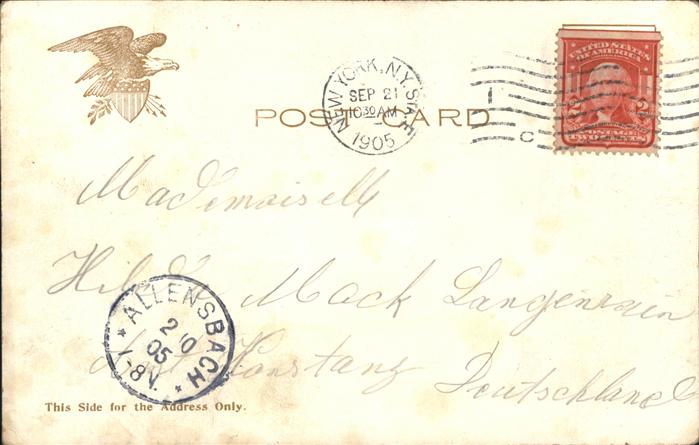 NEW YORK, N.Y. STA. E
SEP 21
10 30 AM
1905
1
C
UNITED STATES
OF AMERICA
2 2
POSTAGE
TWO CENTS
POST CARD
Mademoiselle
Hilda Mack Langenrain
Konstanz
Deutschland
* ALLENSBACH *
2 10
05
7-8V.
This Side for the Address Only.